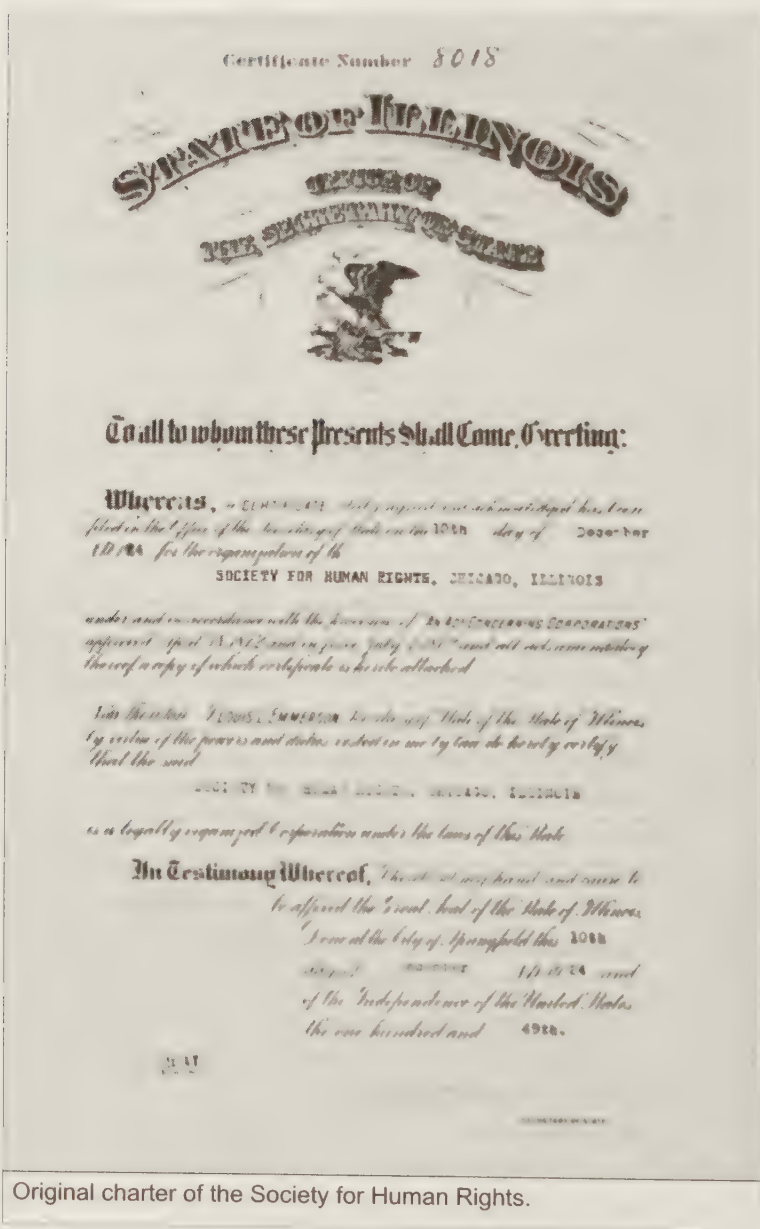 Certificate Number 8018
STATE OF ILLINOIS
OFFICE OF
THE SECRETARY OF STATE
To all to whom these Presents Shall Come, Greeting:
Whereas, a CERTIFICATE duly signed and acknowledged has been
filed in the Office of the Secretary of State on the 10th day of December
A.D. 1924 for the organization of the
SOCIETY FOR HUMAN RIGHTS, CHICAGO, ILLINOIS
under and in accordance with the provisions of "AN ACT CONCERNING CORPORATIONS"
approved April and in force July and all acts amendatory
thereof a copy of which certificate is hereto attached
Now therefore I LOUIS L. EMMERSON Secretary of State of the State of Illinois
by virtue of the powers and duties vested in me by law do hereby certify
that the said
SOCIETY FOR HUMAN RIGHTS, CHICAGO, ILLINOIS
is a legally organized Corporation under the laws of this State
In Testimony Whereof, I hereto set my hand and cause to
be affixed the Great Seal of the State of Illinois
Done at the City of Springfield this 10th
day of December A.D. 1924 and
of the Independence of the United States
the one hundred and 49th.
SEAL
SECRETARY OF STATE
Original charter of the Society for Human Rights.